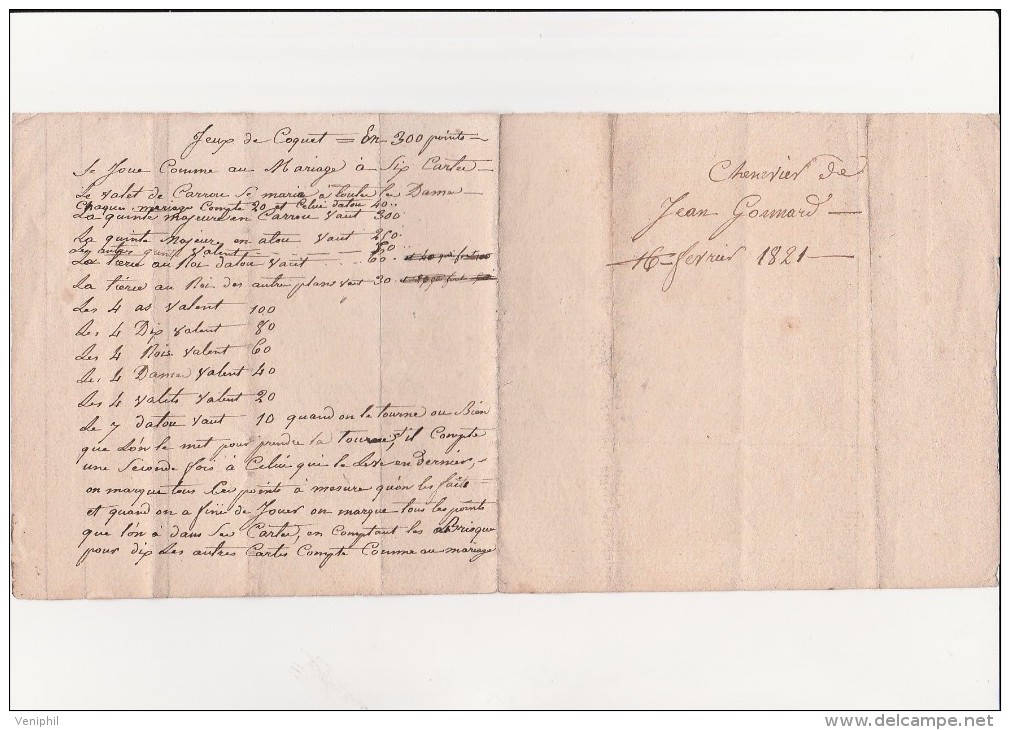 Jeux de Coquet = En 300 points =
Se Joue Comme au Mariage à Six Cartes
Le valet de Carrou Se marie à toute les Dames
Chaque mariage Compte 20 et Celui datou 40..
La quinte majeure en Carrou vaut 300
La quinte Majeur en atou vaut 250
Les autres quint valent 50..
La tierce au Roi datou vaut .. 60
La tierce au Roi des autre plans vaut 30
Les 4 as valent 100
Les 4 Dix valent 80
Les 4 Rois valent 60
Les 4 Dames valent 40
Les 4 valets valent 20
Le 7 datou vaut 10 quand on le tourne ou Bien
que L'on le met pour prendre la tourne, s'il Compte
une Seconde fois à Celui qui le Leve en Dernier,
on marque tous Les points à mesure qu'on les fait
et quand on a fini de Jouer on marque tous les points
que l'on à dans Ses Cartes, en Comptant les Brisque
pour dix Les autres Cartes Compte Comme au mariage
Chenevier de
Jean Gonnard
16 fevrier 1821
Veniphil
www.delcampe.net